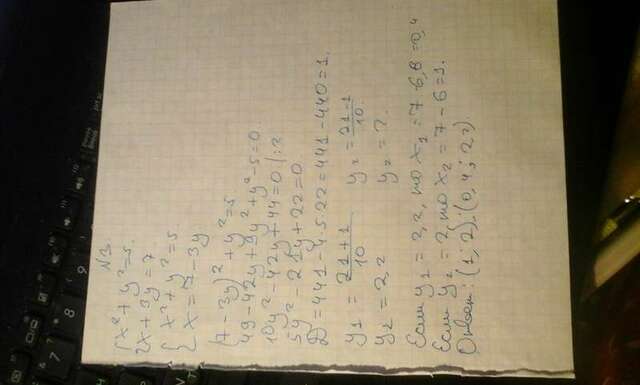 N1
{ x² + y² = 5.
2x + 3y = 7
{ x² + y² = 5
x = 7 - 3y
{ (7 - 3y)² + y² = 5
49 - 42y + 9y² + y² - 5 = 0.
10y² - 42y + 44 = 0 | : 2
5y² - 21y + 22 = 0.
D = 441 - 4·5·22 = 441 - 440 = 1.
y₁ = (21 + 1)/10 y₂ = (21 - 1)/10
y₁ = 2,2 y₂ = 2.
Если y₁ = 2,2, то x₁ = 7 - 6,6 = 0,4
Если y₂ = 2, то x₂ = 7 - 6 = 1.
Ответ: (1; 2); (0,4; 2,2)